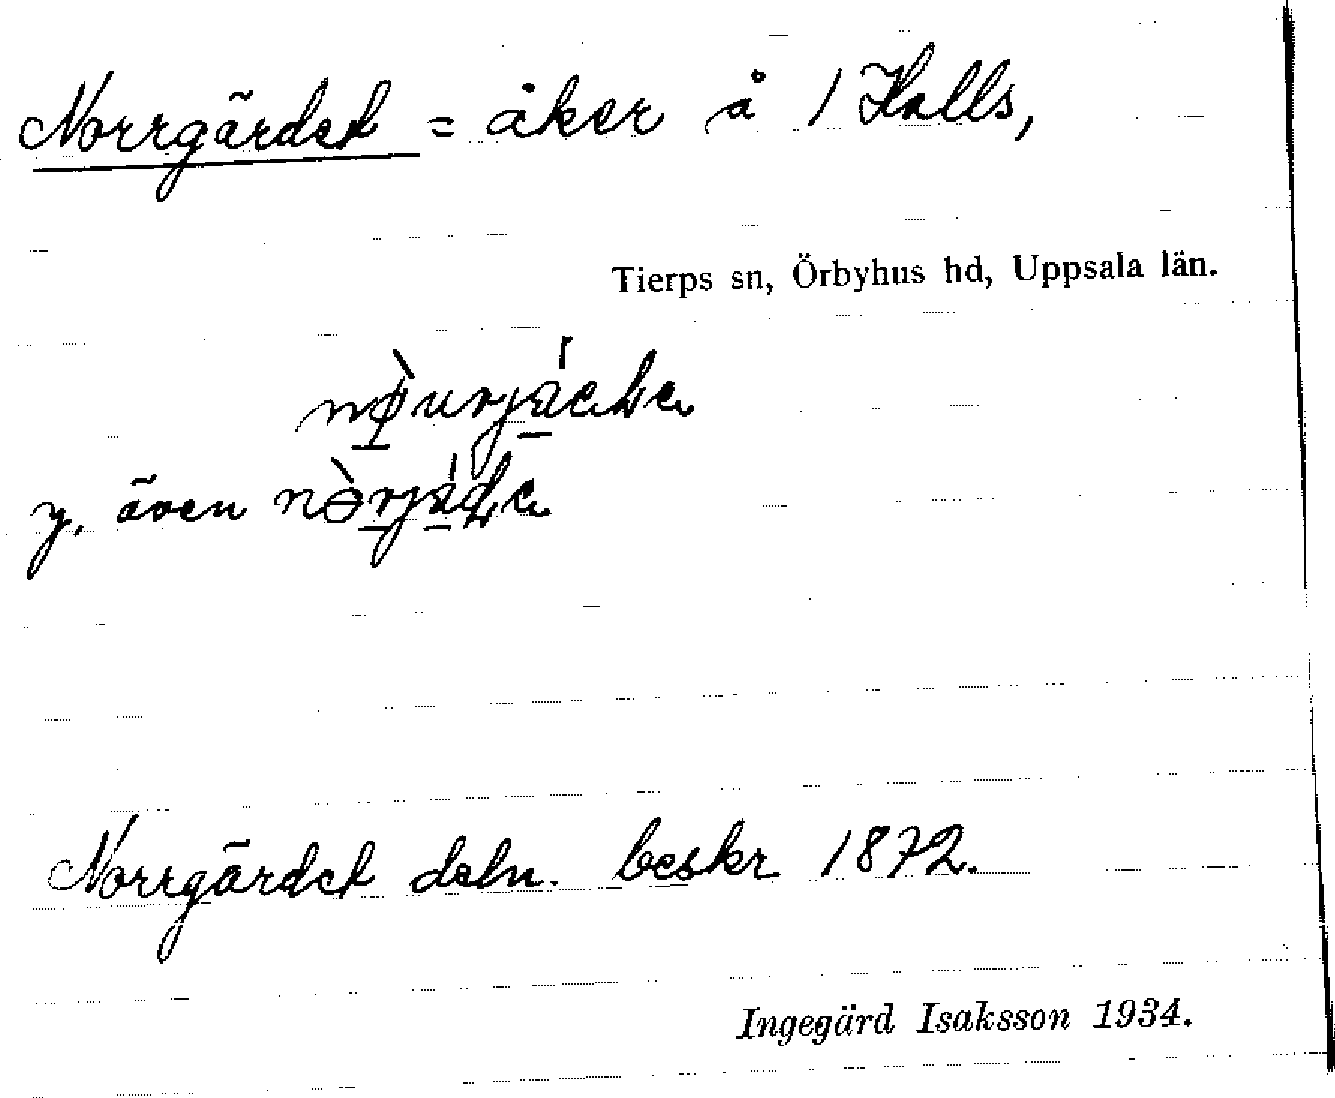 Norrgärdet = åker å 1 Halls,
Tierps sn, Örbyhus hd, Uppsala län.
y. även
Norrgärdet deln. beskr 1872.
Ingegärd Isaksson 1934.